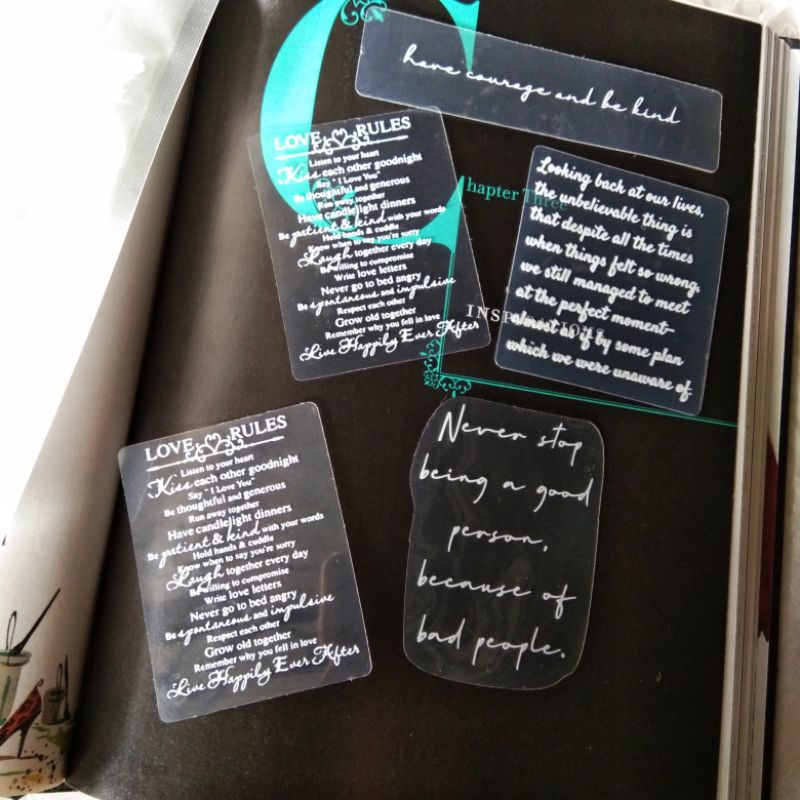 have courage and be kind
LOVE RULES
Listen to your heart
Kiss each other goodnight
Say " I Love You"
Be thoughtful and generous
Run away together
Have candlelight dinners
Be patient & kind with your words
Hold hands & cuddle
Know when to say you're sorry
Laugh together every day
Be willing to compromise
Write love letters
Never go to bed angry
Be spontaneous and impulsive
Respect each other
Grow old together
Remember why you fell in love
Live Happily Ever After
Chapter Three
INSPIRATIONS
Looking back at our lives,
the unbelievable thing is
that despite all the times
when things felt so wrong,
we still managed to meet
at the perfect moment-
almost as if by some plan
which we were unaware of
LOVE RULES
Listen to your heart
Kiss each other goodnight
Say " I Love You"
Be thoughtful and generous
Run away together
Have candlelight dinners
Be patient & kind with your words
Hold hands & cuddle
Know when to say you're sorry
Laugh together every day
Be willing to compromise
Write love letters
Never go to bed angry
Be spontaneous and impulsive
Respect each other
Grow old together
Remember why you fell in love
Live Happily Ever After
Never stop
being a good
person,
because of
bad people.